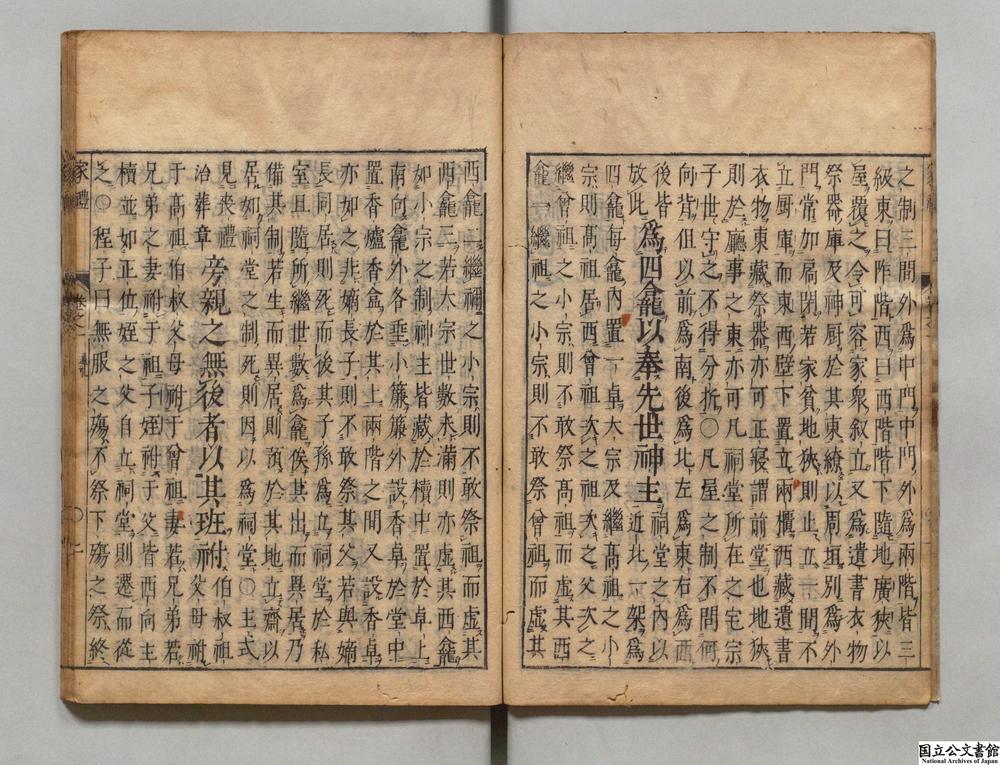 之制三間外爲中門中門外爲兩階皆三
級東曰阼階西曰西階階下隨地廣狹以
屋覆之令可容家衆叙立又爲遺書衣物
祭器庫及神厨於其東繚以周垣別爲外
門常加扃閉若家貧地狹則止立一間不
立厨庫而東西壁下置立兩櫃西藏遺書
衣物東藏祭器亦可正寢謂前堂也地狹
則於廳事之東亦可凡祠堂所在之宅宗
子世守之不得分析○凡屋之制不問何
向背但以前爲南後爲北左爲東右爲西
後皆放此爲四龕以奉先世神主祠堂之内以近北一架爲
四龕每龕内置一卓大宗及繼髙祖之小
宗則髙祖居西曾祖次之祖次之父次之
繼曾祖之小宗則不敢祭髙祖而虛其西
龕一繼祖之小宗則不敢祭曾祖而虛其
西龕二繼禰之小宗則不敢祭祖而虛其
西龕三若大宗世數未滿則亦虛其西龕
如小宗之制神主皆藏於櫝中置於卓上
南向龕外各垂小簾簾外設香卓於堂中
置香爐香盒於其上兩階之間又設香卓
亦如之非嫡長子則不敢祭其父若與嫡
長同居則死而後其子孫爲立祠堂於私
室且隨所繼世數爲龕俟其出而異居乃
備其制若生而異居則預於其地立齋以
居如祠堂之制死則因以爲祠堂○主式
見喪禮治葬章旁親之無後者以其班祔伯叔祖父母祔
于髙祖伯叔父母祔于曾祖妻若兄弟若
兄弟之妻祔于祖子姪祔于父皆西向主
櫝並如正位姪之父自立祠堂則遷而從
之○程子曰無服之殤不祭下殤之祭終
家禮
卷之一
○二
国立公文書館
National Archives of Japan